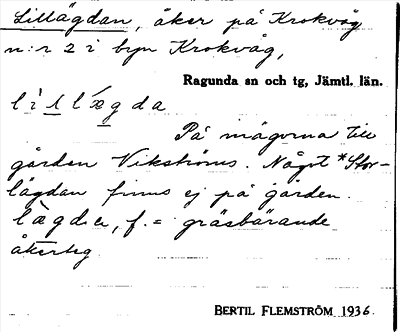 Lillägdan, åker på Krokvåg
n:r 2 i byn Krokvåg,
Ragunda sn och tg, Jämtl. län.
På inägorna till
gården Vikströms. Något *Stor-
lägdan finns ej på gården.
lägde, f. = gräsbärande
åkerteg
BERTIL FLEMSTRÖM 1936.